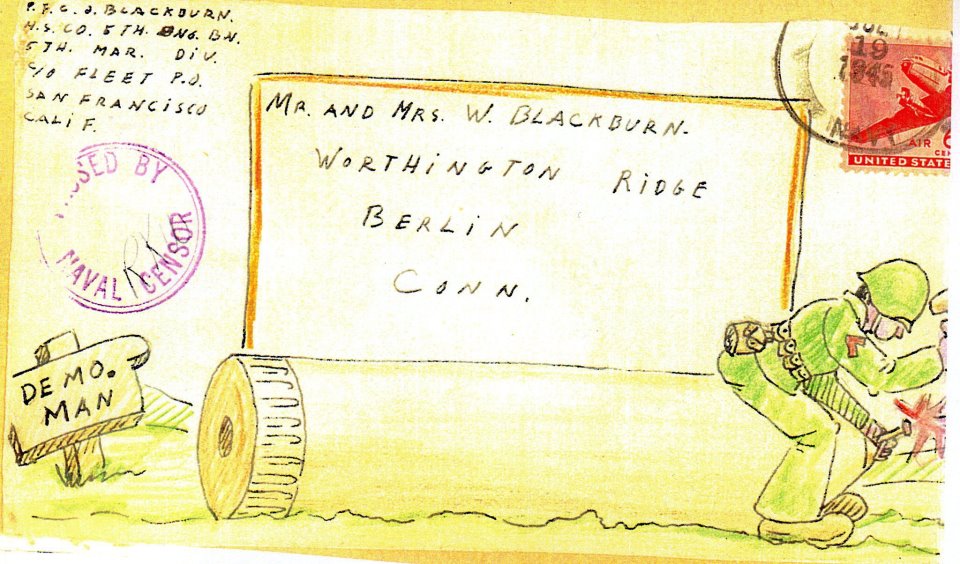 P.F.C. J. BLACKBURN.
H.S. CO. 5TH. ENG. BN.
5TH. MAR. DIV.
C/O FLEET P.O.
SAN FRANCISCO
CALIF.
MR. AND MRS. W. BLACKBURN.
WORTHINGTON RIDGE
BERLIN
CONN.
JUL
19
1945
NAVY
AIR
UNITED STATE
SSED BY
NAVAL CENSOR
DEMO.
MAN